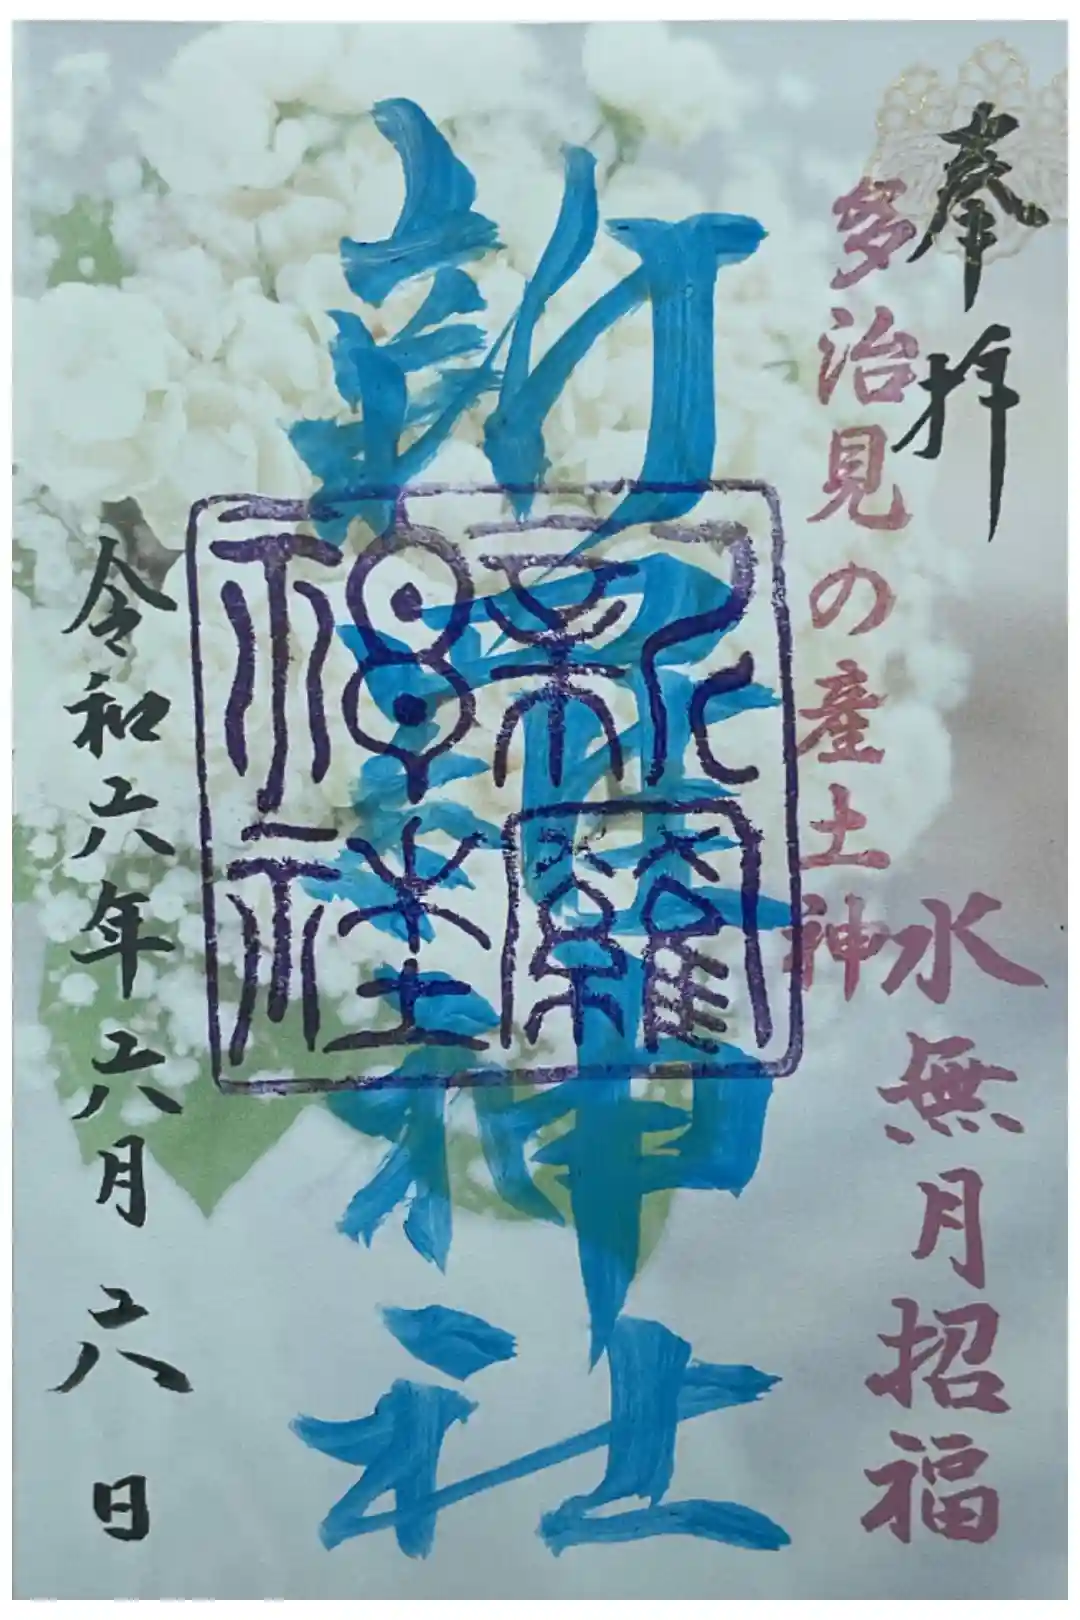 奉拝
多治見の産土神
水無月招福
新羅神社
新羅神社
令和六年六月六日